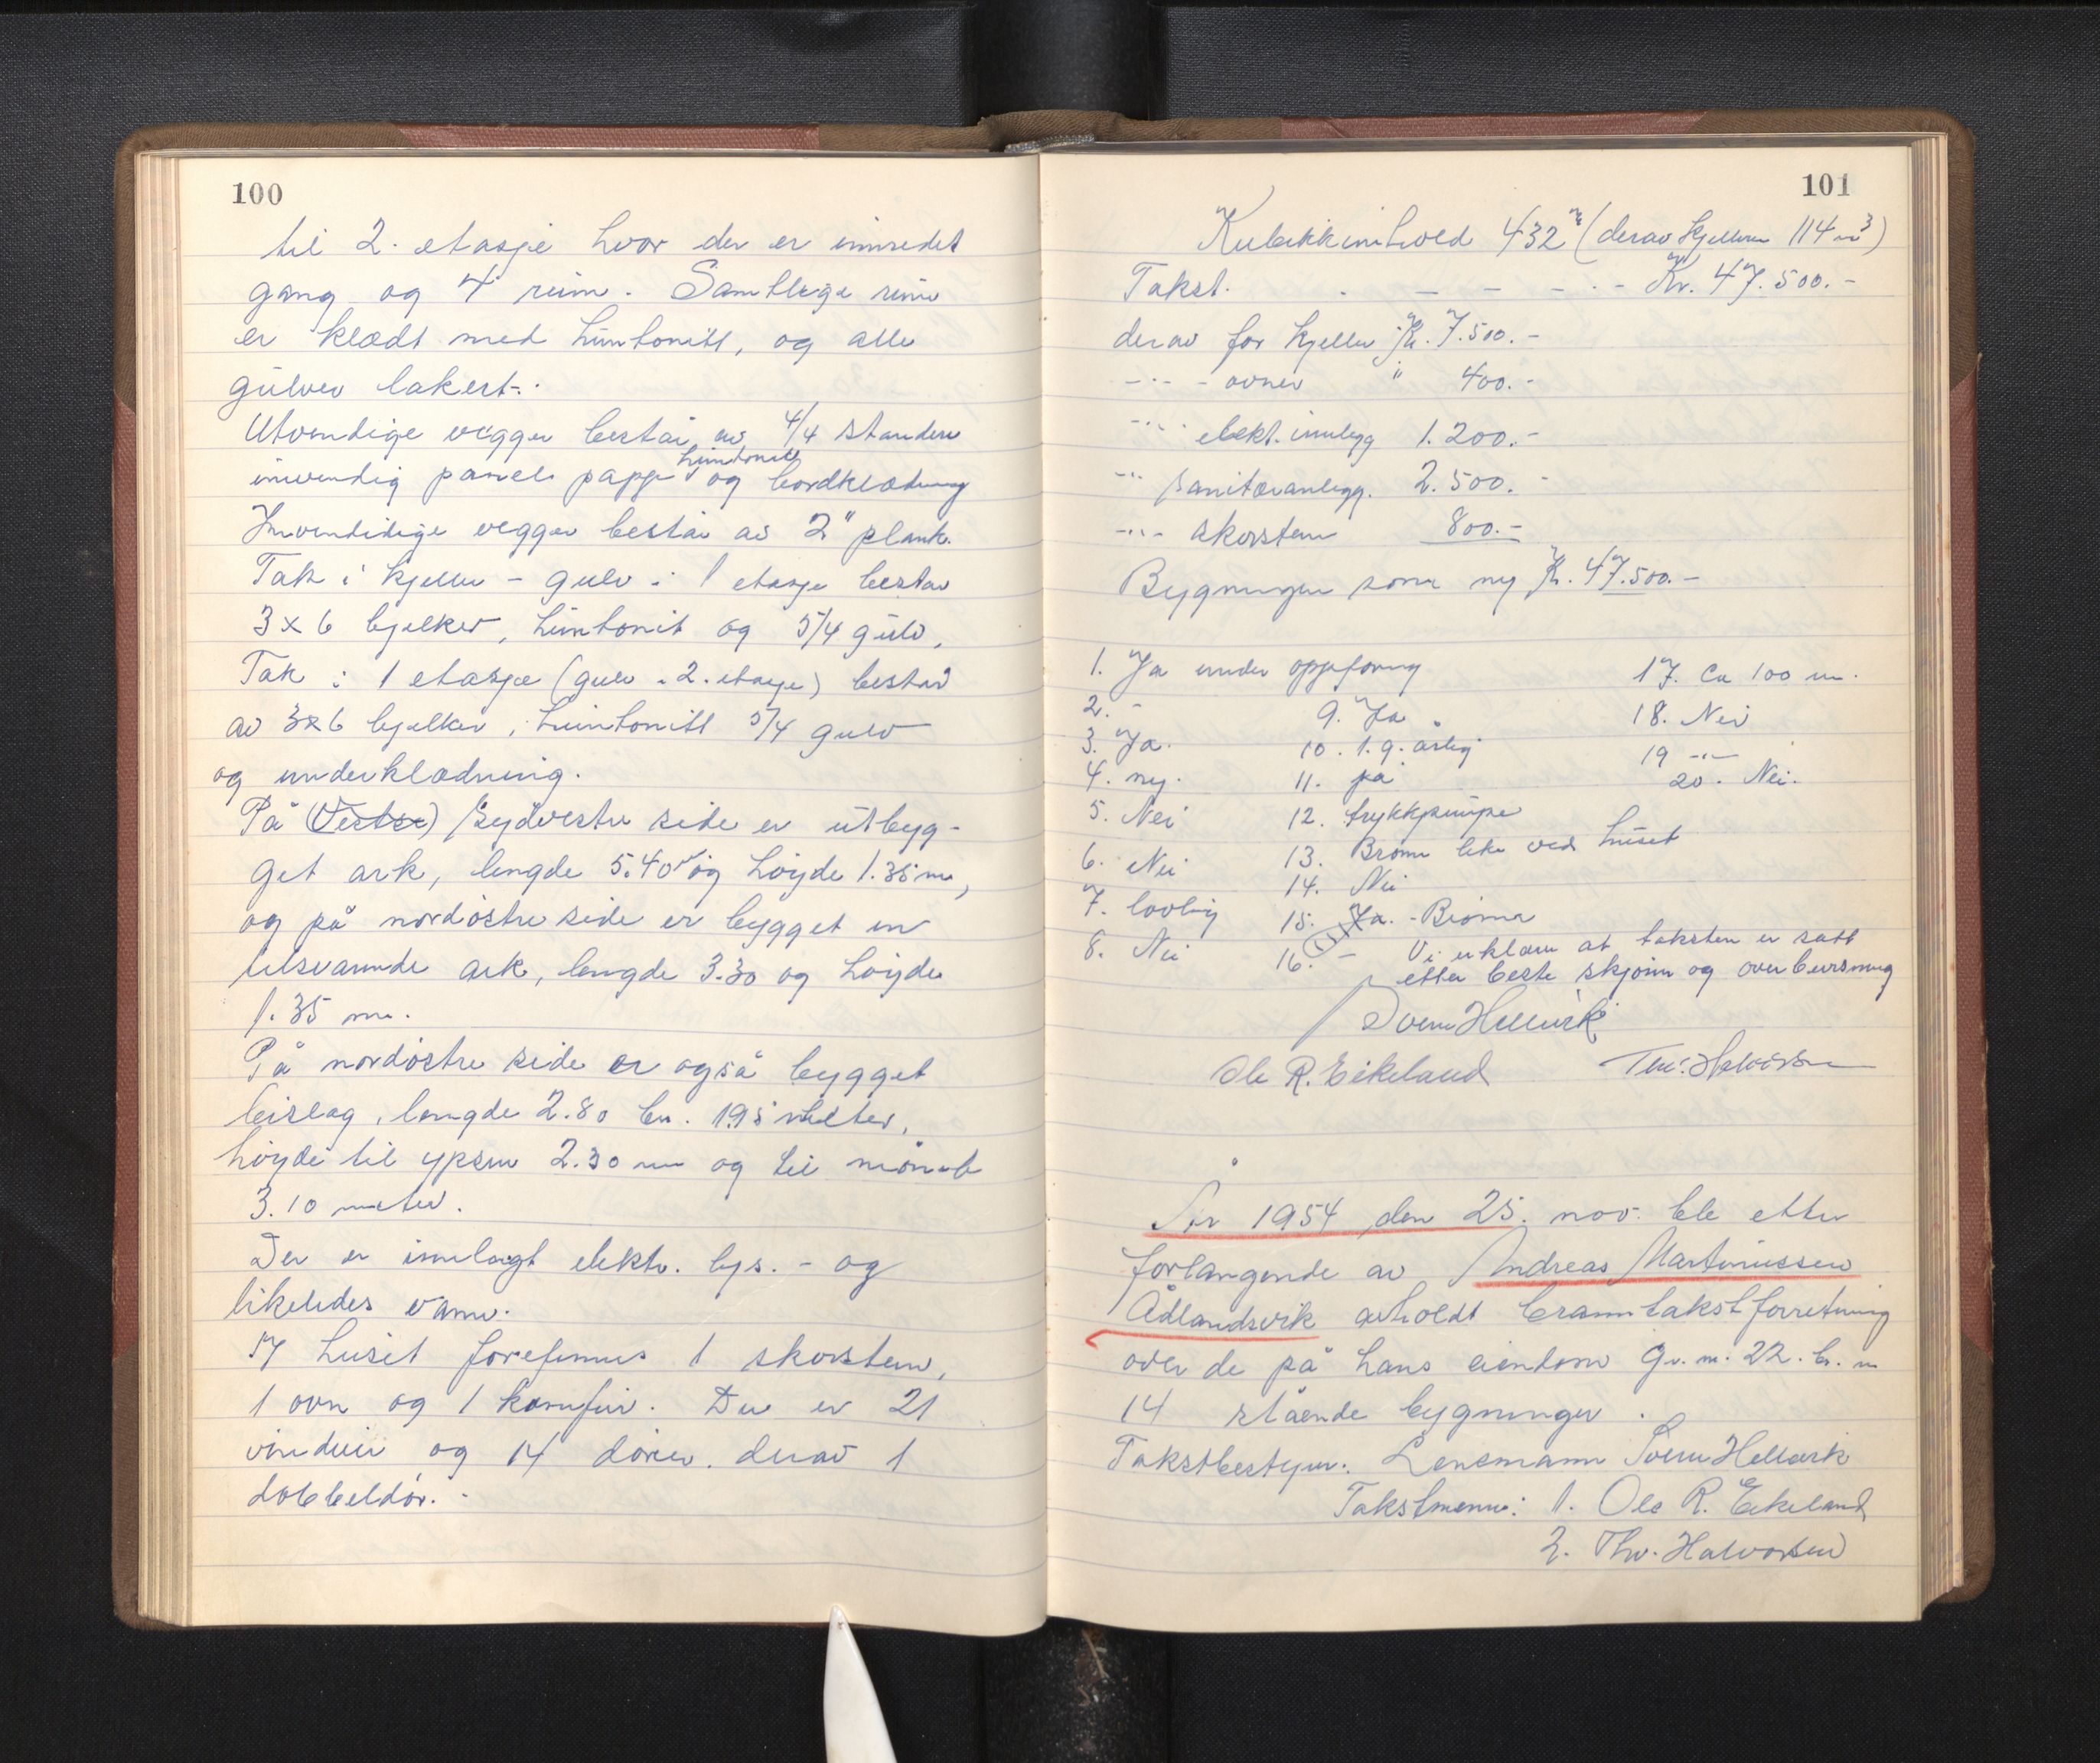 100
til 2. etasje hvor der er innredet
gang og 4 rum. Samtlige rum
er klædt med huntonitt, og alle
gulver lakert.
Utvendige vegger består av 4/4 standere
huntonitt
innvendig panel papp og bordklædning
Innvendidige vegger består av 2" plank.
Tak i kjeller - gulv i 1 etasje består
3x6 bjelker, huntonit og 5/4 gulv.
Tak i 1 etasje (gulv i 2. etasje) består
av 3x6 bjelker, huntonitt 5/4 gulv
og underklædning.
På (Vestre) Sydvestre side er utbyg-
get ark, lengde 5.40 m og høyde 1.35 m,
og på nordøstre side er bygget en
tilsvarende ark, lengde 3.30 og høyde
1.35 m.
På nordøstre side er også bygget
bislag, lengde 2.80 br. 1.95 meter,
høyde til ypsen 2.30 m og til mønet
3.10 meter.
Der er innlagt elektr. lys. - og
likeledes vann.
I huset forefinnes 1 skorstein,
1 ovn og 1 komfur. Der er 21
vinduer og 14 dører. derav 1
dobbeltdør.
101
Kubikkinnhold 432 m (derav kjelleren 114 m3)
Takst. - - - - - Kr. 47.500.-
derav for kjeller Kr. 7.500.-
-"- - ovner " 400.-
-"- elekt. innlegg 1.200.-
-"- sanitæranlegg. 2.500.-
-"- skorsten 800.-
Bygningen som ny Kr. 47.500.-
1. Ja under oppføring
2. -
3. Ja.
4. ny.
5. Nei
6. Nei
7. lovlig
8. Nei
9. Ja
10. 1. g. årlig
11. ja
12. trykkpumpe
13. Brønn like ved huset
14. Nei
15. Ja. - Brønn
16. -
17. Ca 100 m.
18. Nei
19 -"-
20. Nei.
Vi erklærer at taksten er satt
etter beste skjønn og overbevisning
Sverre Hellevik
Ole R. Eikeland Thv. Halvorsen
År 1954 den 25. nov. ble etter
forlangende av Andreas Martinussen
Ådlandsvik avholdt branntakstforretning
over de på hans eiendom Gr. nr. 22. br. nr
14 stående bygninger.
Takstbestyrer: Lensmann Sverre Hellevik
Takstmenn: 1. Ole R. Eikeland
2. Thv. Halvorsen